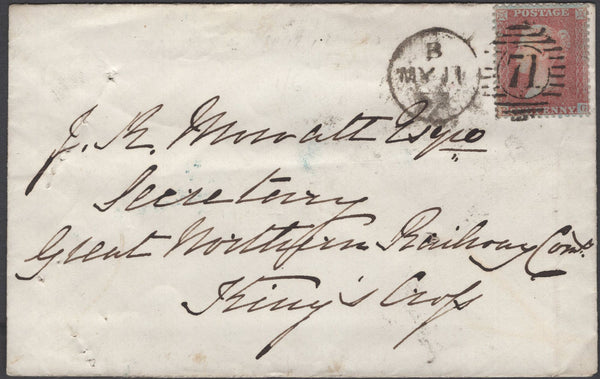 POSTAGE
B
MY 11
71
PENNY
J. R. Mowatt Esqre
Secretery
Great Northern Railway Comp.
King's Cross